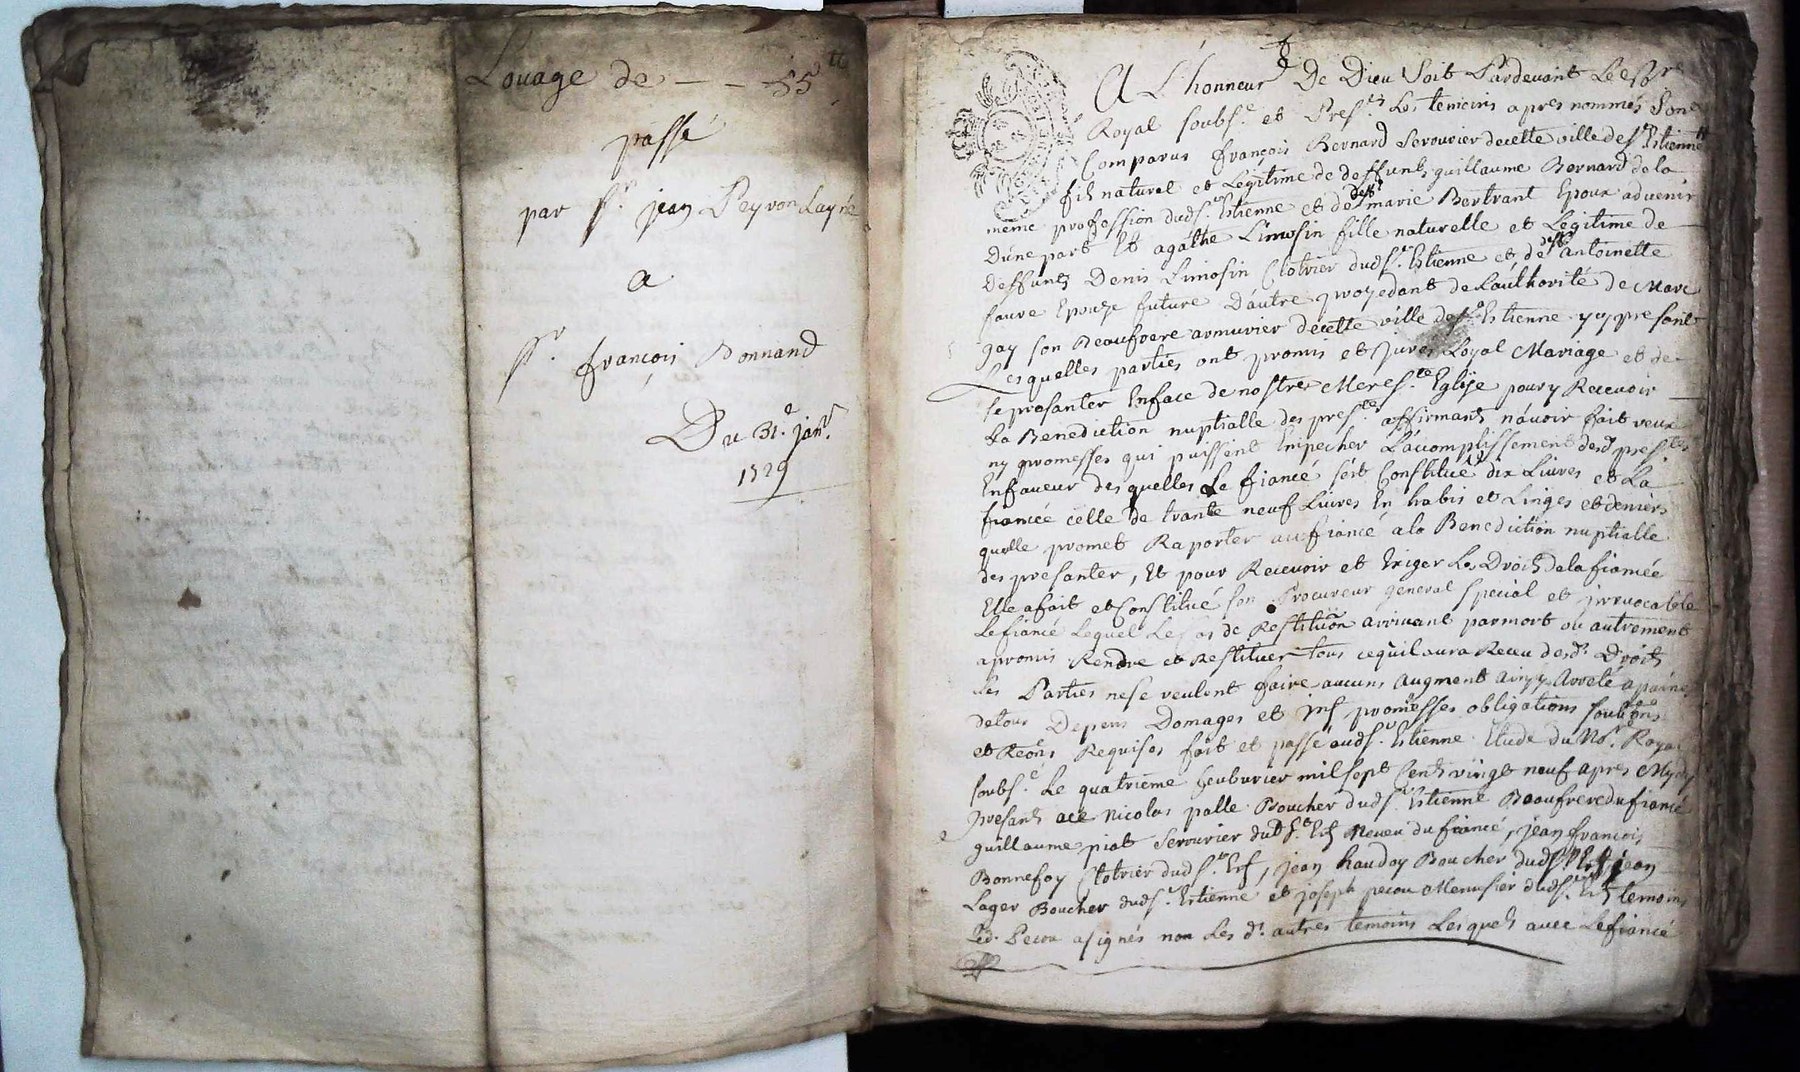 Louage de - - 55 tt
passé
par Sr. jean Peyron Layné
a
Sr. françois Bonnand
Du 31e. janr.
1729
A L'honneur De Dieu Soit Pardevant Le Nore
Royal soubse. et Prests. Les temoins apres nommés Sont
Comparus françois Bernard Serourier de cette ville de St. Estienne
fils naturel et Legitime de deffunts guillaume Bernard de la
meme proffession dudt. St. Estienne et de defte marie Bertrant Epoux advenir
D'une part Et agathe Limosin fille naturelle et Legitime de
deffunts Denis Limosin Clotrier dud St. Estienne et de defte antoinette
faure Epouze future D'autre provedant de L'authorité de Marc
gay son Beaufrere armurier de cette ville de St. Estienne y cy present
Lesquelles parties ont promis et jurés Loyal Mariage et de
se presanter En face de nostre Mere ste. Eglise pour y Recevoir
La Benediction nuptialle des prestes. affirmants n'avoir fait veux
ny promesses qui puissent Empecher L'acomplissement desd. prestes
En faveur des quelles Le fiancé s'est Constitué dix Livres et La
fiancée celle de trante neuf Livres En habis et Linges et deniers
quelle promet Raporter au fiancé a la Benediction nuptialle
des presanter, Et pour Recevoir et Exiger Les Droits de la fiancée
Elle a fait et Constitué son Procureur general special et irrevocable
Le fiancé Lequel Le cas de Restituon arrivant par mort ou autrement
a promis Rendre et Restituer tous ce qu'il aura Receu desd. Droits
Les Parties ne se veulent faire aucuns augment ainsy Arreté a paine
de tous Depens Domages et Ints promesses obligations soubons
et Reons Requises fait et passé aud St. Estienne Etude du Nore. Royal
soubse. Le quatrieme feuburier mil sept Cents vingt neuf apres Mydy
presants a ce Nicolas palle Boucher dud St. Estienne Beaufrere du fiancé
guillaume piot Serourier dud St. Est Neveu du fiancé, jean françois
Bonnefoy Clotrier dud St. Est, jean haudoy Boucher dud St. Est jean
Lager Boucher dud St. Estienne et joseph pecou Menusier dud St. Est temoins
Led. Pecou a signés non Les ds. autres temoins Lesquels avec Le fiancé